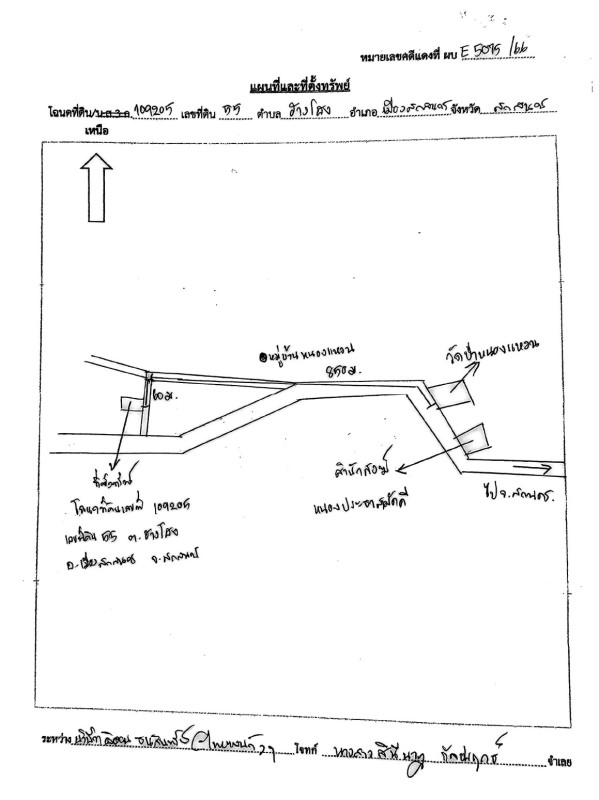 หมายเลขคดีแดงที่ ผบ E 5095/66
แผนที่และที่ตั้งทรัพย์
โฉนดที่ดิน/น.ส.3 ก 109205 เลขที่ดิน 55 ตำบล ช้างโฮง อำเภอ เมืองสกลนคร จังหวัด สกลนคร
เหนือ
หมู่บ้านหนองแหวน
850 ม.
วัดป่าหนองแหวน
60 ม.
ที่ตั้งทรัพย์
โฉนดที่ดินเลขที่ 109205
เลขที่ดิน 55 ต.ช้างโฮง
อ.เมืองสกลนคร จ.สกลนคร
สำนักสงฆ์
หนองประชาสามัคคี
ไป จ.สกลนคร
ระหว่าง โจทก์ นางสาว จำเลย